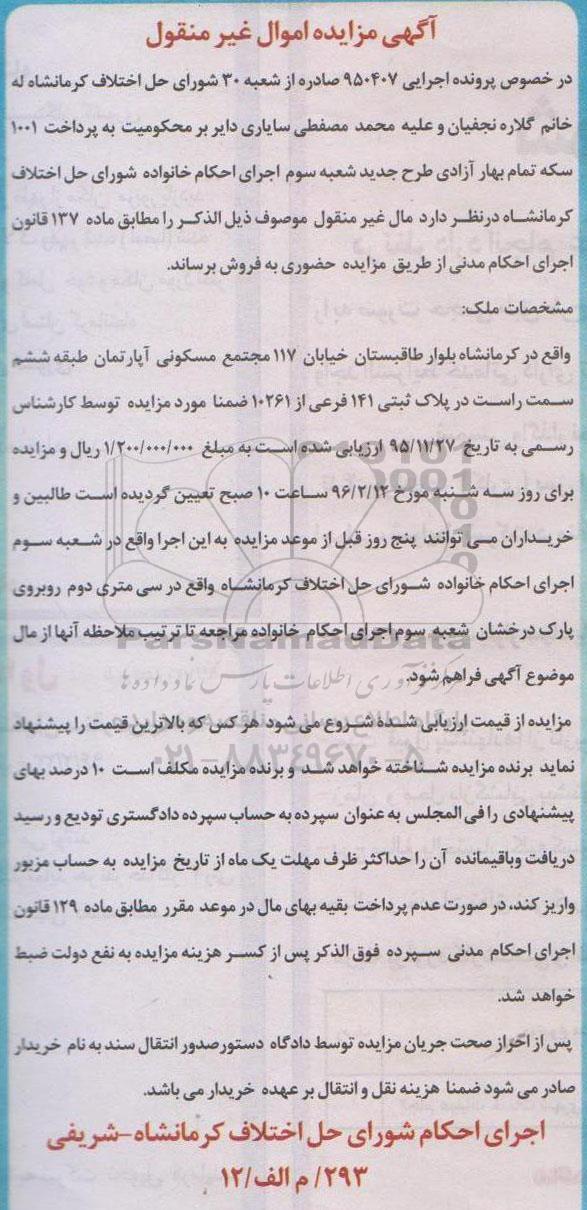 آگهی مزایده اموال غیر منقول
در خصوص پرونده اجرایی ۹۵۰۴۰۷ صادره از شعبه ۳۰ شورای حل اختلاف کرمانشاه له
خانم گلاره نجفیان و علیه محمد مصفطی سایاری دایر بر محکومیت به پرداخت ۱۰۰۱
سکه تمام بهار آزادی طرح جدید شعبه سوم اجرای احکام خانواده شورای حل اختلاف
کرمانشاه درنظر دارد مال غیر منقول موصوف ذیل الذکر را مطابق ماده ۱۳۷ قانون
اجرای احکام مدنی از طریق مزایده حضوری به فروش برساند.
مشخصات ملک:
واقع در کرمانشاه بلوار طاقبستان خیابان ۱۱۷ مجتمع مسکونی آپارتمان طبقه ششم
سمت راست در پلاک ثبتی ۱۴۱ فرعی از ۱۰۲۶۱ ضمنا مورد مزایده توسط کارشناس
رسمی به تاریخ ۹۵/۱۱/۲۷ ارزیابی شده است به مبلغ ۱/۲۰۰/۰۰۰/۰۰۰ ریال و مزایده
برای روز سه شنبه مورخ ۹۶/۲/۱۲ ساعت ۱۰ صبح تعیین گردیده است طالبین و
خریداران می توانند پنج روز قبل از موعد مزایده به این اجرا واقع در شعبه سوم
اجرای احکام خانواده شورای حل اختلاف کرمانشاه واقع در سی متری دوم روبروی
پارک درخشان شعبه سوم اجرای احکام خانواده مراجعه تا ترتیب ملاحظه آنها از مال
ParsNamadData
موضوع آگهی فراهم شود.
مرکز فرآوری اطلاعات پارس نماد داده ها
مزایده از قیمت ارزیابی شده شروع می شود هر کس که بالاترین قیمت را پیشنهاد
نماید برنده مزایده شناخته خواهد شد و برنده مزایده مکلف است ۱۰ درصد بهای
۰۲۱-۸۸۳۴۹۶۷۰
پیشنهادی را فی المجلس به عنوان سپرده به حساب سپرده دادگستری تودیع و رسید
دریافت وباقیمانده آن را حداکثر ظرف مهلت یک ماه از تاریخ مزایده به حساب مزبور
واریز کند، در صورت عدم پرداخت بقیه بهای مال در موعد مقرر مطابق ماده ۱۲۹ قانون
اجرای احکام مدنی سپرده فوق الذکر پس از کسر هزینه مزایده به نفع دولت ضبط
خواهد شد.
پس از احراز صحت جریان مزایده توسط دادگاه دستورصدور انتقال سند به نام خریدار
صادر می شود ضمنا هزینه نقل و انتقال بر عهده خریدار می باشد.
اجرای احکام شورای حل اختلاف کرمانشاه-شریفی
۲۹۳/ م الف/۱۲